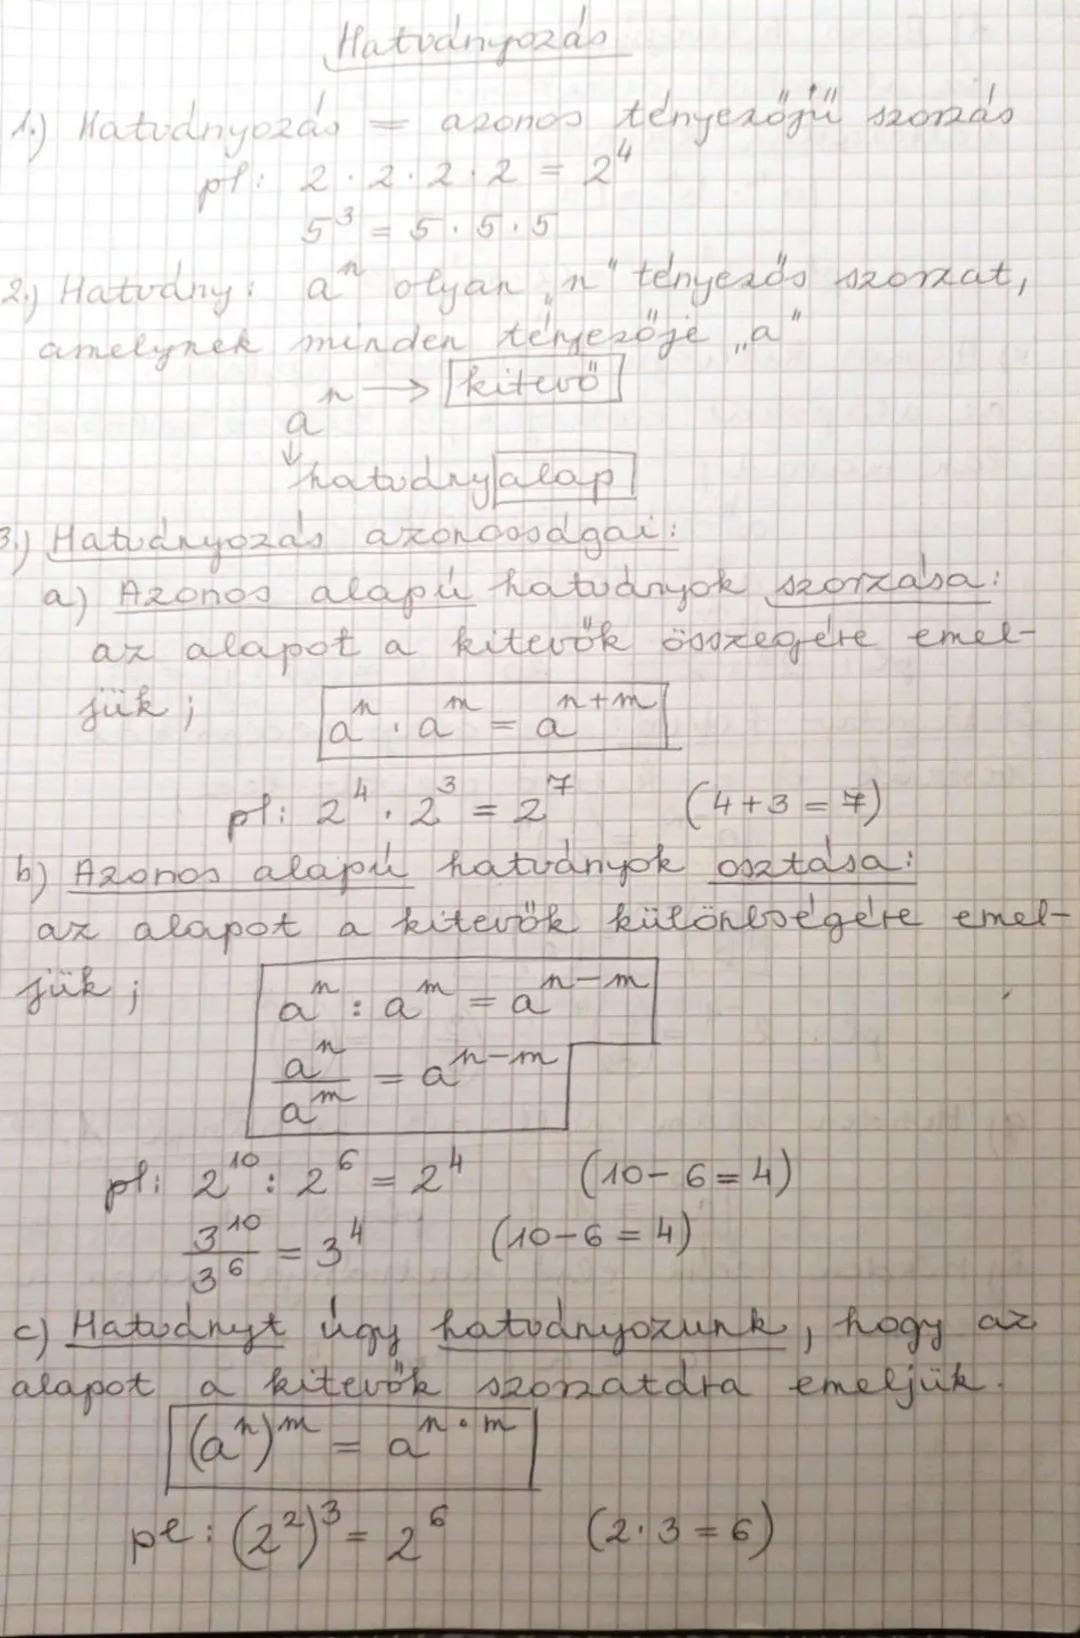 Hatványozás
1.) Hatványozás = azonos tényezőjű szorzás
pl: 2 · 2 · 2 · 2 = 2⁴
5³ = 5 · 5 · 5
2.) Hatvány: aⁿ olyan „n" tényezős szorzat,
amelynek minden tényezője „a"
n → kitevő
a
↓
hatványalap
3.) Hatványozás azonosságai:
a) Azonos alapú hatványok szorzása:
az alapot a kitevők összegére emel-
jük ; aⁿ · aᵐ = aⁿ⁺ᵐ
pl: 2⁴ · 2³ = 2⁷ (4+3 = 7)
b) Azonos alapú hatványok osztása:
az alapot a kitevők különbségére emel-
jük ; aⁿ : aᵐ = aⁿ⁻ᵐ
aⁿ/aᵐ = aⁿ⁻ᵐ
pl: 2¹⁰ : 2⁶ = 2⁴ (10-6=4)
3¹⁰/3⁶ = 3⁴ (10-6=4)
c) Hatványt úgy hatványozunk, hogy az
alapot a kitevők szorzatára emeljük.
(aⁿ)ᵐ = aⁿ·ᵐ
pl: (2²)³ = 2⁶ (2·3=6)